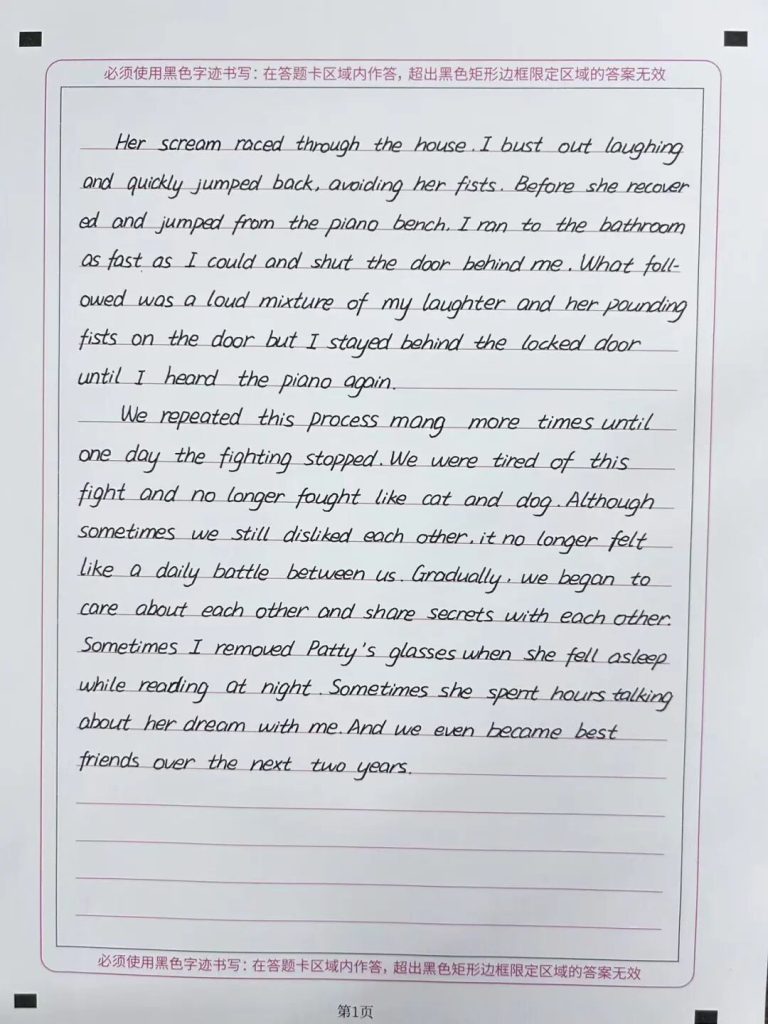 必须使用黑色字迹书写：在答题卡区域内作答，超出黑色矩形边框限定区域的答案无效
Her scream raced through the house. I bust out laughing
and quickly jumped back, avoiding her fists. Before she recover
ed and jumped from the piano bench, I ran to the bathroom
as fast as I could and shut the door behind me. What foll-
owed was a loud mixture of my laughter and her pounding
fists on the door but I stayed behind the locked door
until I heard the piano again.
We repeated this process mang more times until
one day the fighting stopped. We were tired of this
fight and no longer fought like cat and dog. Although
sometimes we still disliked each other, it no longer felt
like a daily battle between us. Gradually, we began to
care about each other and share secrets with each other.
Sometimes I removed Patty's glasses when she fell asleep
while reading at night. Sometimes she spent hours talking
about her dream with me. And we even became best
friends over the next two years.
必须使用黑色字迹书写：在答题卡区域内作答，超出黑色矩形边框限定区域的答案无效
第1页